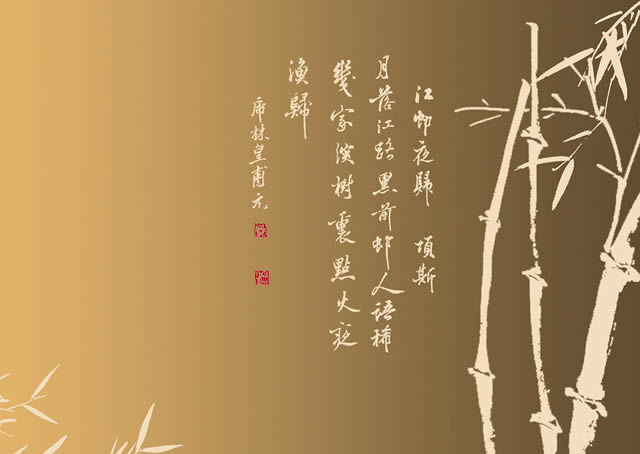 江邨夜歸 項斯
月落江路黑前邨人語稀
幾家深樹裏點火夜
漁歸
林皇甫元